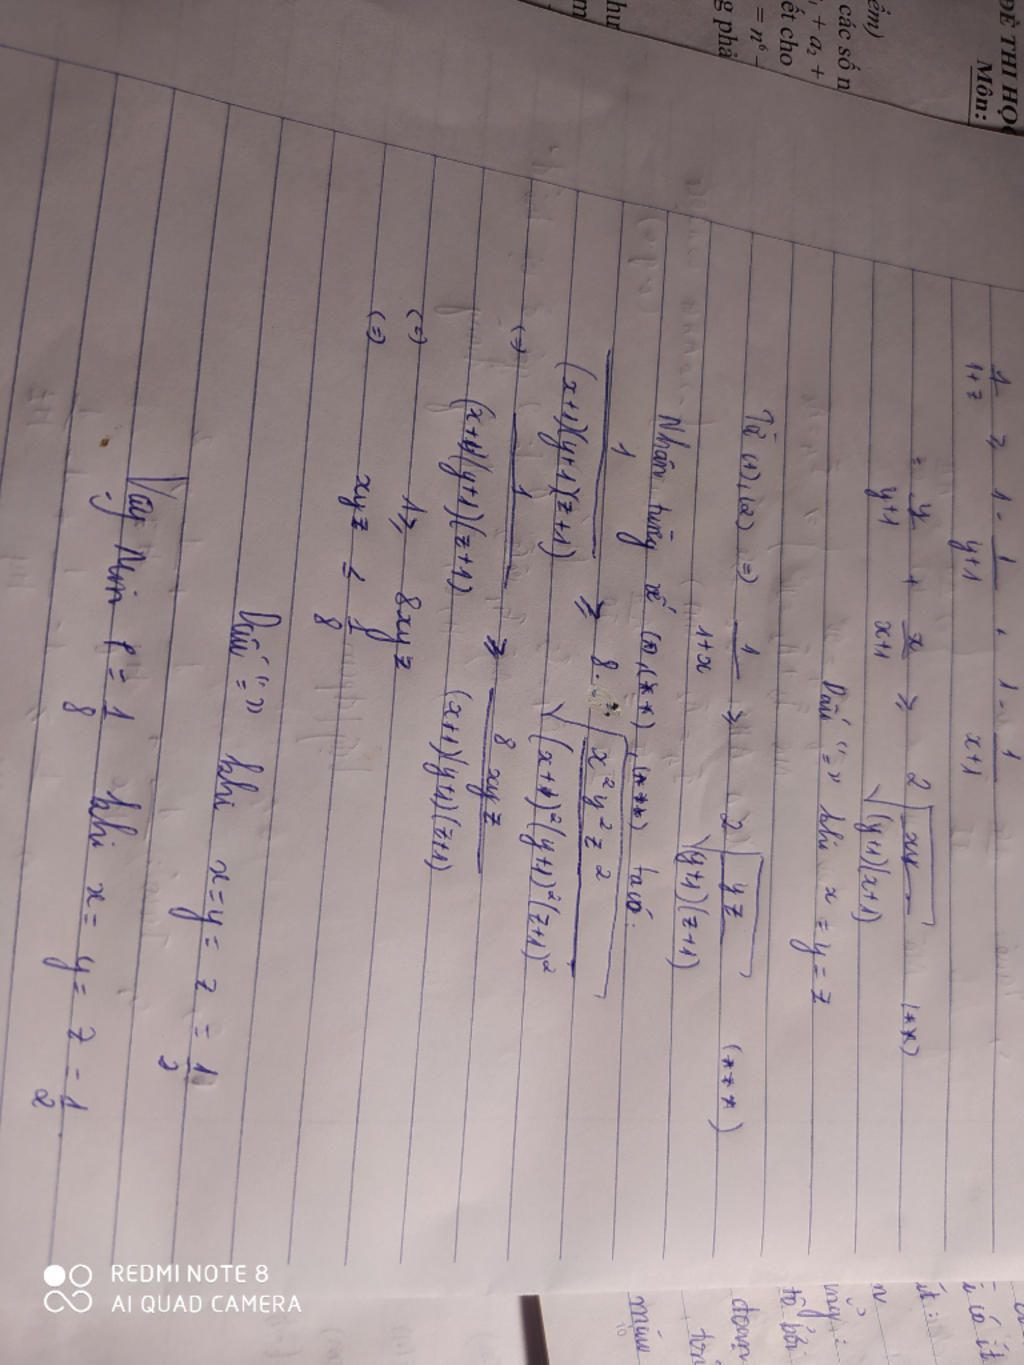 ĐỀ THI HỌC
Môn:
các số n
ết cho
1/(1+z) ≥ 1 - 1/(y+1) + 1 - 1/(x+1)
= y/(y+1) + x/(x+1) ≥ 2√(xy/((y+1)(x+1))) (**)
Dấu "=" khi x = y = z
Từ (1), (2) => 1/(1+x) ≥ 2√(yz/((y+1)(z+1))) (***)
Nhân từng vế (*), (**), (***) ta có:
1/((x+1)(y+1)(z+1)) ≥ 8.√(x²y²z²/((x+1)²(y+1)²(z+1)²))
(=) 1/((x+1)(y+1)(z+1)) ≥ 8xyz/((x+1)(y+1)(z+1))
(=) 1 ≥ 8xyz
(=) xyz ≤ 1/8
Dấu "=" khi x = y = z = 1/2
Vậy Min P = 1/8 khi x = y = z = 1/2
REDMI NOTE 8
AI QUAD CAMERA